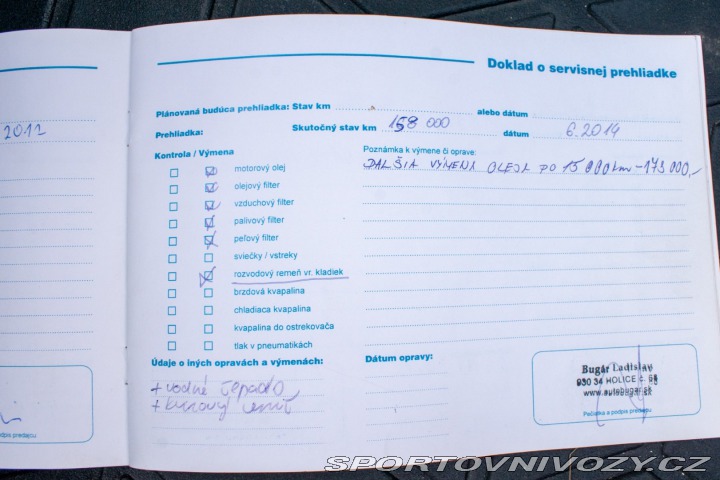 2012
Doklad o servisnej prehliadke
Plánovaná budúca prehliadka: Stav km alebo dátum
Prehliadka: Skutočný stav km 158 000 dátum 6.2014
Kontrola / Výmena
motorový olej
olejový filter
vzduchový filter
palivový filter
peľový filter
sviečky / vstreky
rozvodový remeň vr. kladiek
brzdová kvapalina
chladiaca kvapalina
kvapalina do ostrekovača
tlak v pneumatikách
Poznámka k výmene či oprave:
ĎALŠIA VÝMENA OLEJA PO 15 000 km - 173 000,-
Údaje o iných opravách a výmenách:
+ vodné čepadlo
+ klinový
Dátum opravy:
Bugár Ladislav
930 34 HOLICE č.
www.autobugar.sk
Pečiatka a podpis predajcu
podpis predajcu
SPORTOVNIVOZY.CZ